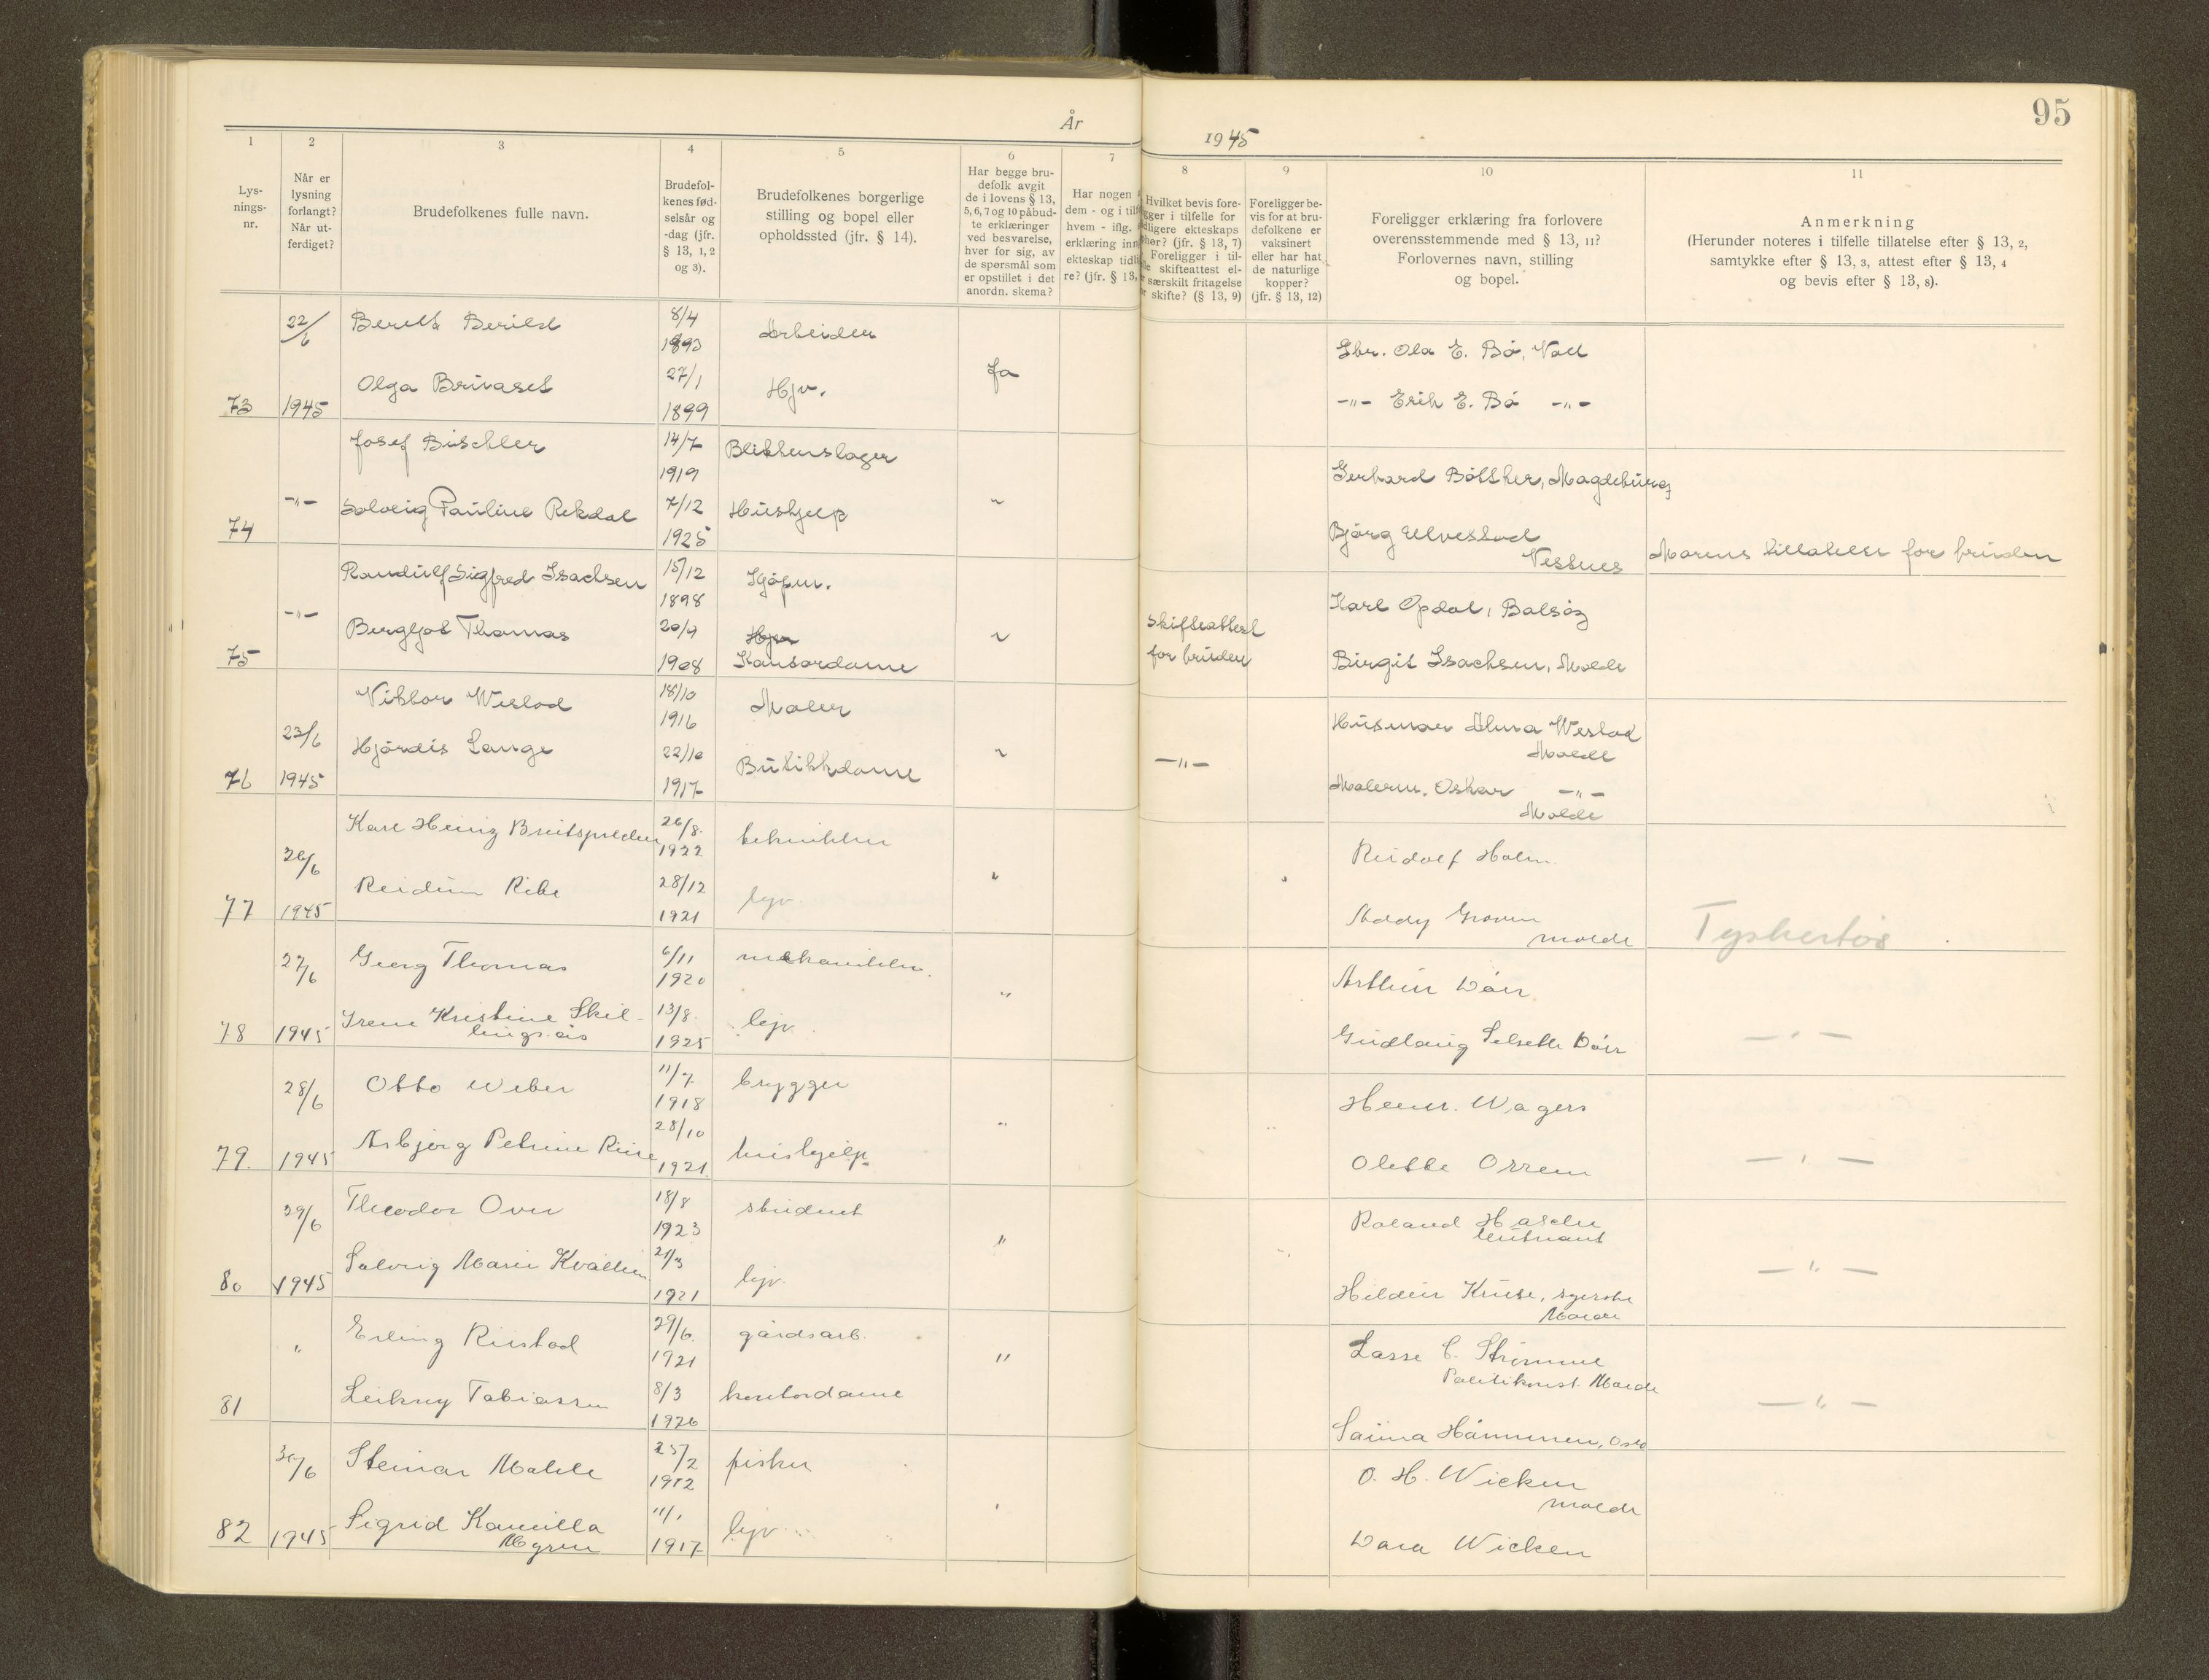 95
År 1945
1 2 3 4 5 6 7 8 9 10 11
Lys-
nings-
nr.
Når er
lysning
forlangt?
Når ut-
ferdiget?
Brudefolkenes fulle navn.
Brudefol-
kenes fød-
selsår og
-dag (jfr.
§ 13, 1, 2
og 3).
Brudefolkenes borgerlige
stilling og bopel eller
opholdssted (jfr. § 14).
Har begge bru-
defolk avgit
de i lovens § 13,
5, 6, 7 og 10 påbud-
te erklæringer
ved besvarelse,
hver for sig, av
de spørsmål som
er opstillet i det
anordn. skema?
Har nogen
dem - og i tilf
hvem - iflg.
erklæring inn
ekteskap tidl
re? (jfr. § 13,
Hvilket bevis fore-
gger i tilfelle for
dligere ekteskaps
her? (jfr. § 13, 7)
Foreligger i til-
le skifteattest el-
r særskilt fritagelse
r skifte? (§ 13, 9)
Foreligger be-
vis for at bru-
defolkene er
vaksinert
eller har hat
de naturlige
kopper?
(jfr. § 13, 12)
Foreligger erklæring fra forlovere
overensstemmende med § 13, 11?
Forlovernes navn, stilling
og bopel.
Anmerkning
(Herunder noteres i tilfelle tillatelse efter § 13, 2,
samtykke efter § 13, 3, attest efter § 13, 4
og bevis efter § 13, 8).
22/6 Berild 8/4 1893 Arbeider
Gbr. Ola E. Bø, Voll
73 1945 Olga 27/1 1899 Hjv. Ja
-"- Erik E. Bø -"-
Josef Bischler 14/7 1919 Blikkenslager
Gerhard Böttker, Magdeburg
74 -"- Solveig Pauline Rekdal 7/12 1925 Hushjelp "
Bjørg Ulvestad
Vestnes
Morens tillatelse for bruden
Randulf Sigfred Isachsen 15/12 1898 Kjøpm.
Karl Opdal, Bolsøy
75 -"- Bergljot Thomas 20/9 1908 Hjv
Kontordame "
Skifteattest
for bruden
Birgit Isachsen, Molde
Viktor Westad 18/10 1916 Maler
Husmor Alma Westad
Molde
76 23/6 1945 Hjørdis Lange 22/10 1917 Butikkdame " -"-
Malerm. Oskar -"-
Molde
Karl Heinz 26/8 1922 tekniker
Rudolf Holm
77 26/6 1945 Reidun Ribe 28/12 1921 hjv. "
Molde
Tyskertøs
27/6 Georg Thomas 6/11 1920 mekaniker.
Arthur Døir
78 1945 Irene Kristine Skil-
lingsås 13/8 1925 hjv. "
Gudlaug Selsette Døir
— " —
28/6 Otto Weber 11/7 1918 brygger
Henr. Wagers
79. 1945 Asbjørg Petrine 28/10 1921 hushjelp "
Olette Orrem
— " —
29/6 Theodor Over 18/8 1923 student
Roland
leutnant
80 1945 Solveig Marie 21/3 1921 hjv. "
Hildur Kruse, syerske
Molde
— " —
" Erling Rustad 29/6 1921 gårdsarb.
Lasse C. Strømme
Politikonst. Molde
81 Leikny Tobiassen 8/3 1926 kontordame "
Saima Hänninen, Oslo
— " —
30/6 Steinar 25/2 1912 fisker
O. H. Wicken
Molde
82 1945 Sigrid Kamilla
Myren 11/1 1917 hjv "
Dara Wicken